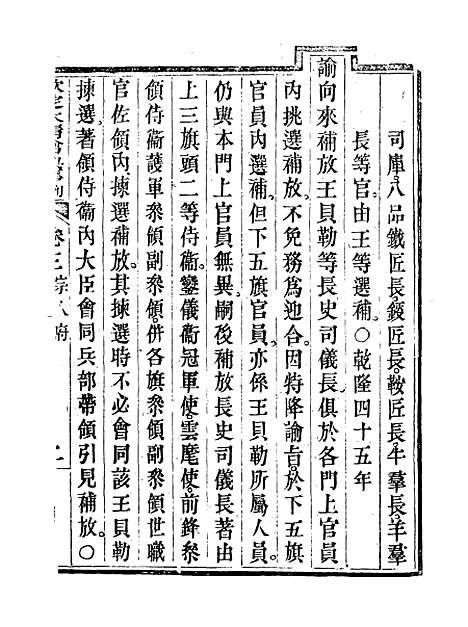 司庫八品鐵匠長。鍐匠長。鞍匠長。牛羣長。羊羣
長等官。由王等選補。〇乾隆四十五年
諭向來補放王貝勒等長史司儀長。俱於各門上官員
內挑選補放。不免務爲迎合。因特降諭旨。於下五旗
官員內選補。但下五旗官員。亦係王貝勒所屬人員。
仍與本門上官員無異。嗣後補放長史司儀長。著由
上三旗頭二等侍衞。鑾儀衞冠軍使。雲麾使。前鋒參
領侍衞護軍參領副參領。併各旗參領副參領世職
官佐領內。揀選補放。其揀選時不必會同該王貝勒
揀選。著領侍衞內大臣會同兵部帶領引見補放。〇
欽定大淸會典
卷三 宗人府